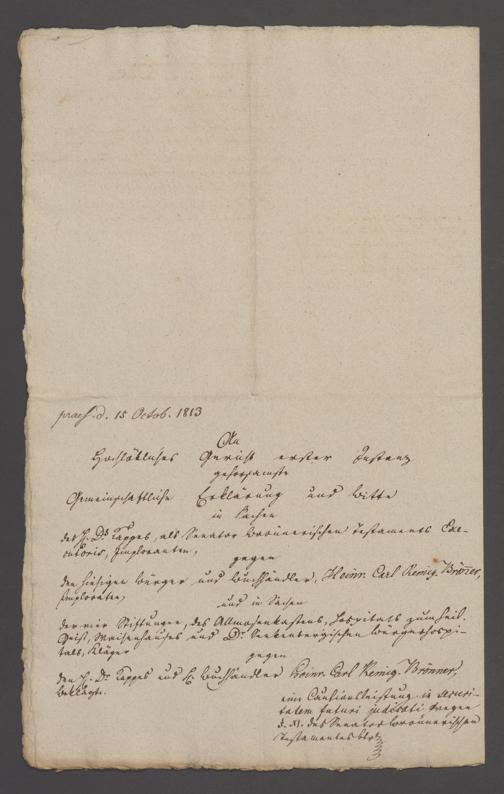 praes. d. 15 Octob. 1813
An
Hochlöbliches Gericht erster Instanz
gehorsamste
Gemeinschaftliche Erklärung und Bitte
in Sachen
des H. Dr. Kappes, als Senator Brönnerischen Testaments Exe-
cutoris, Imploranten,
gegen
den hiesigen Bürger und Buchhändler, Heinr. Carl Remig. Brönner,
Imploraten,
und in Sachen
der vier Stiftungen, des Allmosenkastens, Hospitals zum heil.
Geist, Waisenhauses und Dr. Senkenbergischen Bürgerhospi-
tals, Kläger
gegen
den H. Dr. Kappes und H. Buchhändler Heinr. Carl Remig. Brönner,
Beklagte.
eine Cautionsleistung in securi-
tatem futuri judicati wegen
des Senator Brönnerischen
Testamentes